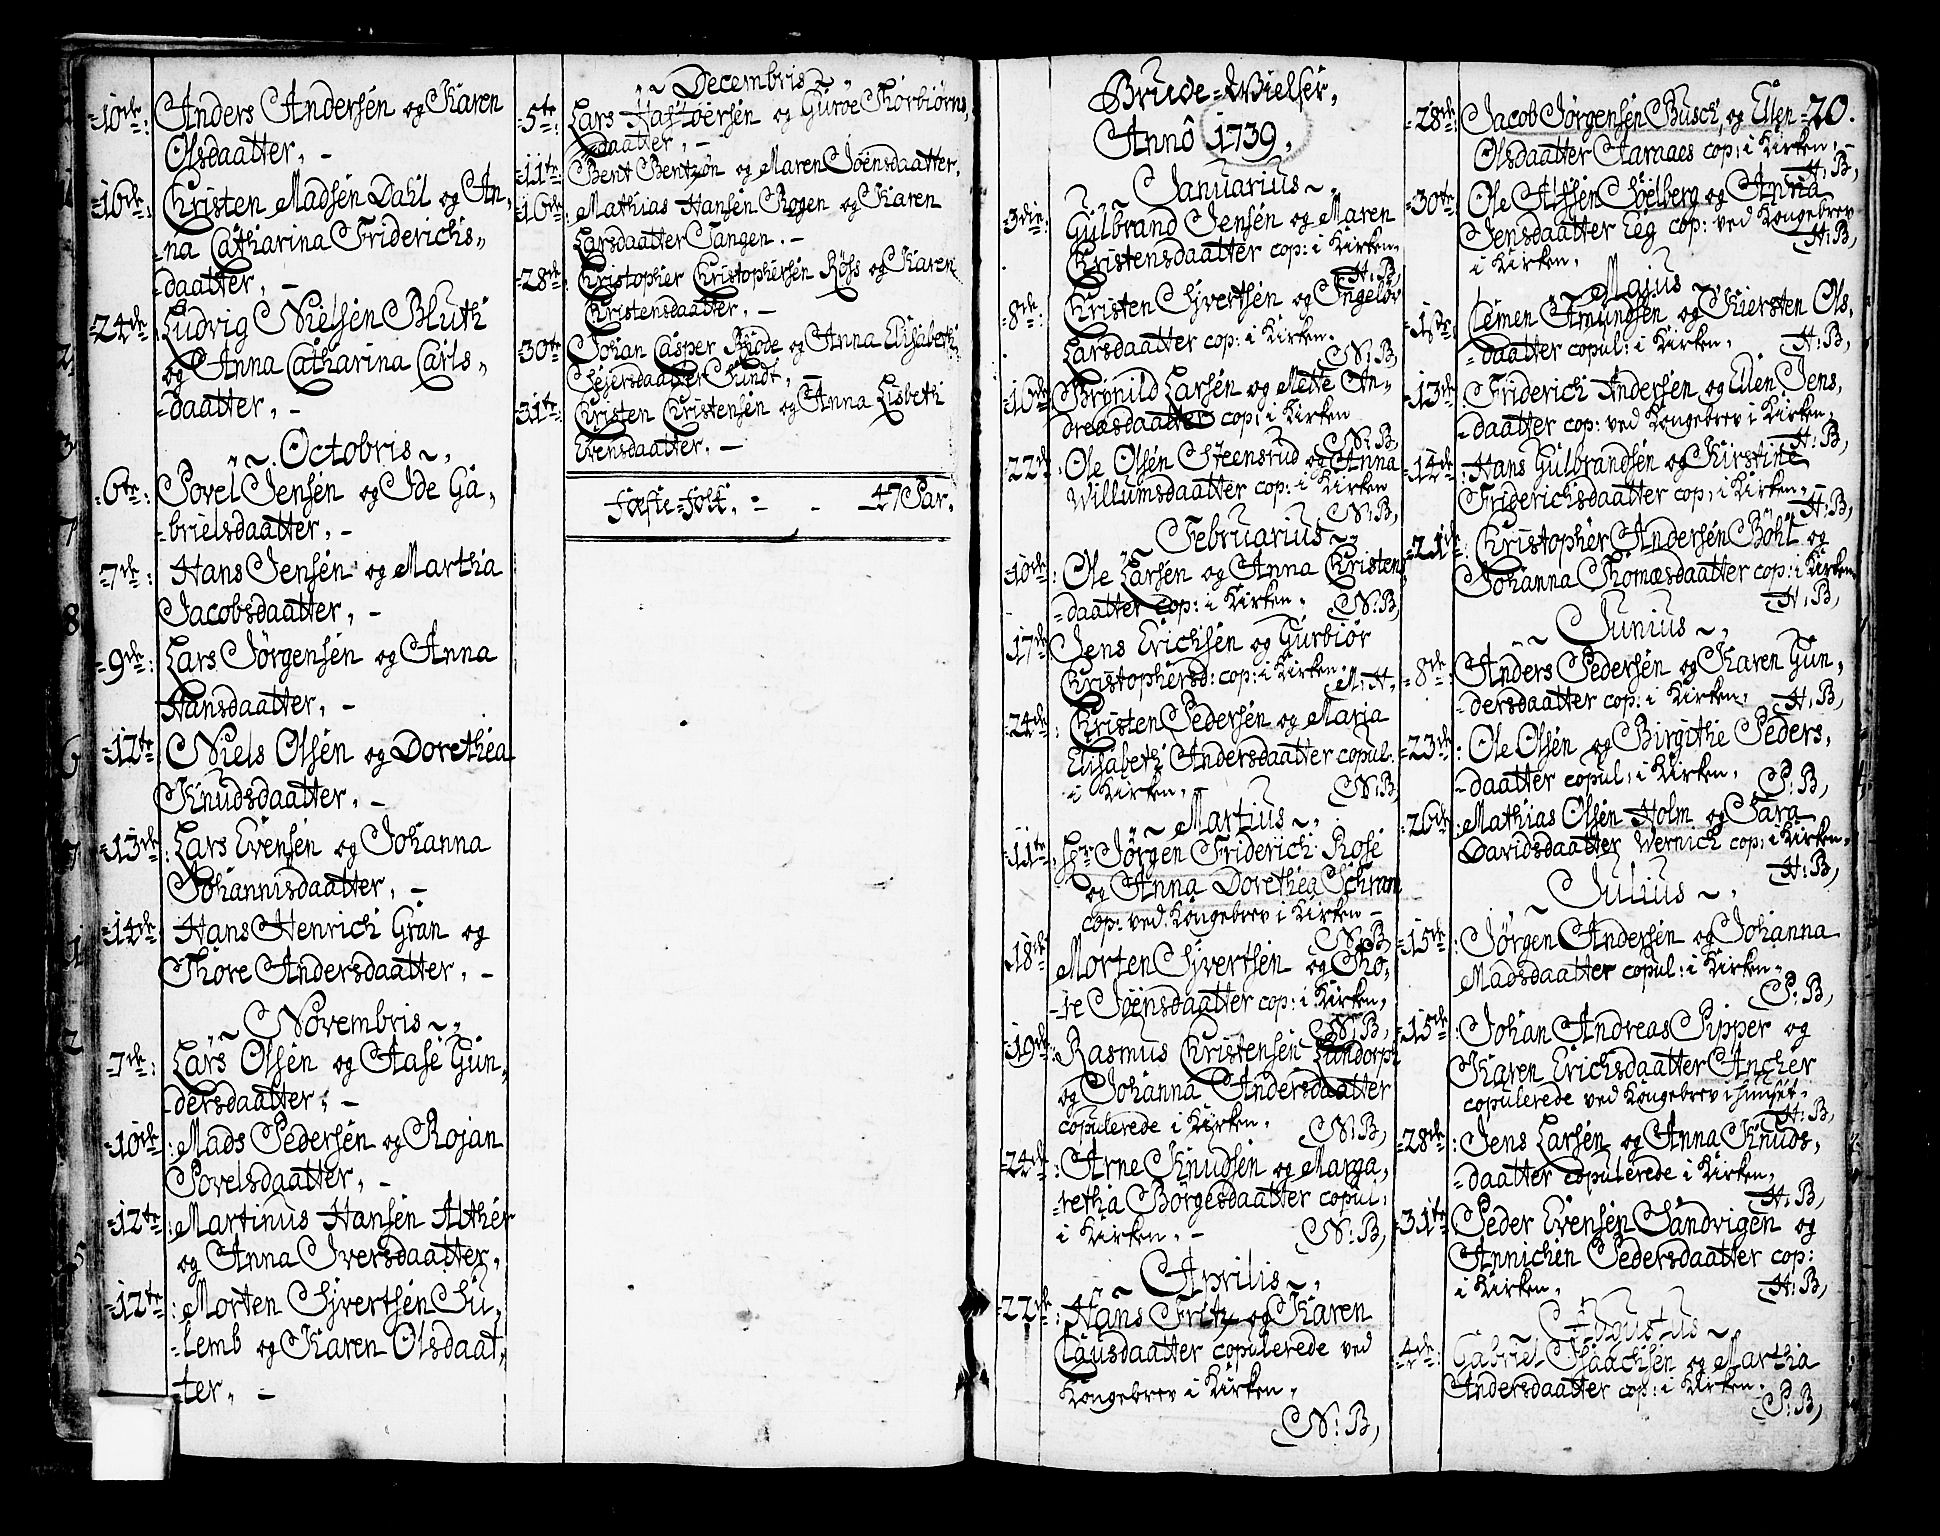 -10de: Anders Andersen og Karen
Olsdaatter, -
-16de: Christen Madsen Dahl og An,
na Catharina Friderichs,,
daatter, -
-24de: Ludvig Nielsen Bluth
og Anna Catharina Carls,,
-daatter, -
,,~ Octobris ~,,
-6te: Povel Jensen og Ide Ga,
-brielsdaatter, -
-7de: Hans Jensen og Martha
Jacobsdaatter, -
-9de: Lars Jørgensen og Anna
Hansdaatter, -
-12te: Niels Olsen og Dorethea
Knudsdaatter, -
-13de: Lars Evensen og Johanna
Johannisdaatter, -
-14de: Hans Henrich Gran og
Thore Andersdaatter, -
,,~ Novembris ~,,
-7de: Lars Olsen og Aase Gun,,
-dersdaatter, -
-10de: Mads Pedersen og Rojan
Povelsdaatter, -
-12te: Martinus Hansen Alther
og Anna Iversdaatter,
-12te: Morten Sjvertsen Su,
-lemb og Karen Olsdaat,
-ter, -
,,~ Decembris ~,,
-5te: Lars Giroe Thorbiørns,
daatter, -
-11te: Bent Bentzøn og Maren Joensdaatter,
-16de: Mathias Hansen Rogen og Karen
Larsdaatter Tangen. -
-28de: Christopher Christophersen Röss og Karen
Christensdaatter, -
-30te: Johan Casper Riode og Anna Elisabeth
Sejersdaatter Sundt, -
-31te: Christen Christensen og Anna Lisbeth
Evensdaatter, -
47 Par.
Brude-Wielser,
Annô 1739,
,,~ Januarius ~,
-3die: Gulbrand Jensen og Maren
Christensdaatter cop: i Kirken,
H:B,
-8de: Christen Sjvertsen og Ingeber
Larsdaatter cop: i Kirken.
N:B,
-10de: Brynild Larsen og Mette An,
dreasdaatter cop; i Kirken
N:B,
-22de: Ole Olsen Steensrud og Anna
Willumsdaatter cop: i Kirken
N:B,
,,~ Februarius ~,,
-10de: Ole Larsen og Anna Christens,
-daatter cop: i Kirken, N:B,
-17de Jens Erichsen og Gurbiør
Christophersd: cop: i Kirken, M:H,
-24de: Christen Pedersen og Maria
Elisabeth Andersdaatter copul.
i Kirken, - N:B,
,,~ Martius ~,
-11te. Hr Jørgen Friderich Rose
og Anna Dorethea Schram
cop: ved Kongebrev i Kirken -
N:B
-18de Morten Sjvertsen og Tho,
-re Joensdaatter cop: i Kirken,
N:B,
-19de: Rasmus Christensen Landorph
og Johanna Andersdaatter
copulerede i Kirken, N:B,
-24de: Arne Knudsen og Marga,
-retha Børgesdaatter copul:
i Kirken, - N:B,
,,~ Aprilis ~,
-22de: Hans Fritz og Karen
Clausdaatter copulerede ved
Kongebrev i Kirken,
N:B,
-28de: Jacob Jørgensen Busch, og Ellen -20.
Olsdaatter Aaraaes cop: i Kirken, -
H:B,
-30te: Ole Alfsen Soelberg og Anna
Jensdaatter Leg cop: ved Kongebrev
i Kirken, H:B,
~ Majus ~,
-1ste: Clemen Amundsen og Kiersten Ols,
-daatter copul: i Kirken, H:B,
-13de: Friderich Andersen og Ellen Jens,
-daatter cop: ved Kongebrev i Kirken,
H:B,
-14de: Hans Gulbrandsen og Kirstine
Friderichsdaatter cop, i Kirken, -
H:B,
-21de: Christopher Andersen Böhl og
Johanna Thomæsdaatter cop: i Kirken,
H:B,
,,~ Junius ~,
-8de: Anders Pedersen og Karen Gun,
-dersdaatter cop: i Kirken, H:B,
-23de: Ole Olsen og Birgithe Peders,
-daatter copul: i Kirken, P:B,
-26de: Mathias Olsen Holm og Sara
Davidsdaatter Wernich cop: i Kirken,
H:B,
~ Julius ~,
-15de: Jørgen Andersen og Johanna
Madsdaatter copul: i Kirken,
P:B,
-15de: Johan Andreas Pipper og
Karen Erichsdaatter Ancher
copulerede ved Kongebrev i Huuset.
H:B,
-28de: Jens Larsen og Anna Knuds,
-daatter copulerede i Kirken,
H:B,
-31te: Peder Evensen Sandvigen og
Annichen Pedersdaatter cop:
i Kirken, H:B,
~ Augustus ~,
-4de: Gabriel Isaachsen og Martha
Andersdaatter cop: i Kirken,
P:B,